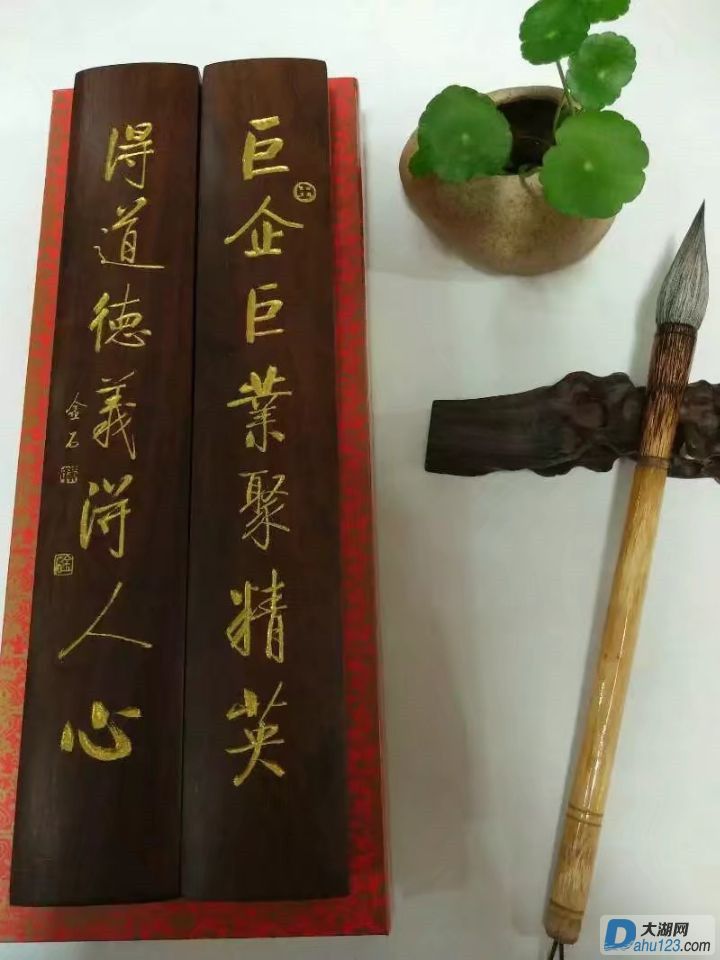 巨企巨業聚精英
得道德義得人心
金石
大湖网
Dahu123.com